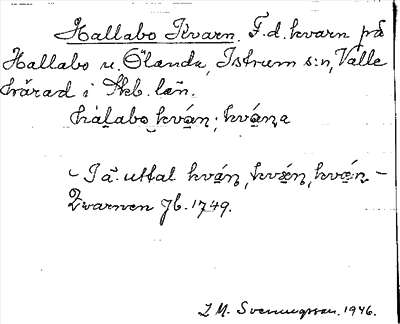 Hallabo Kvarn. F.d. kvarn på
Hallabo u. Ölanda, Istrum s:n, Valle
härad i Skb. län.
hálabo kván; kvána
I ä. uttal kván, kván, kván –
Qvarnen Jb. 1749.
L.M. Svennungsson. 1946.